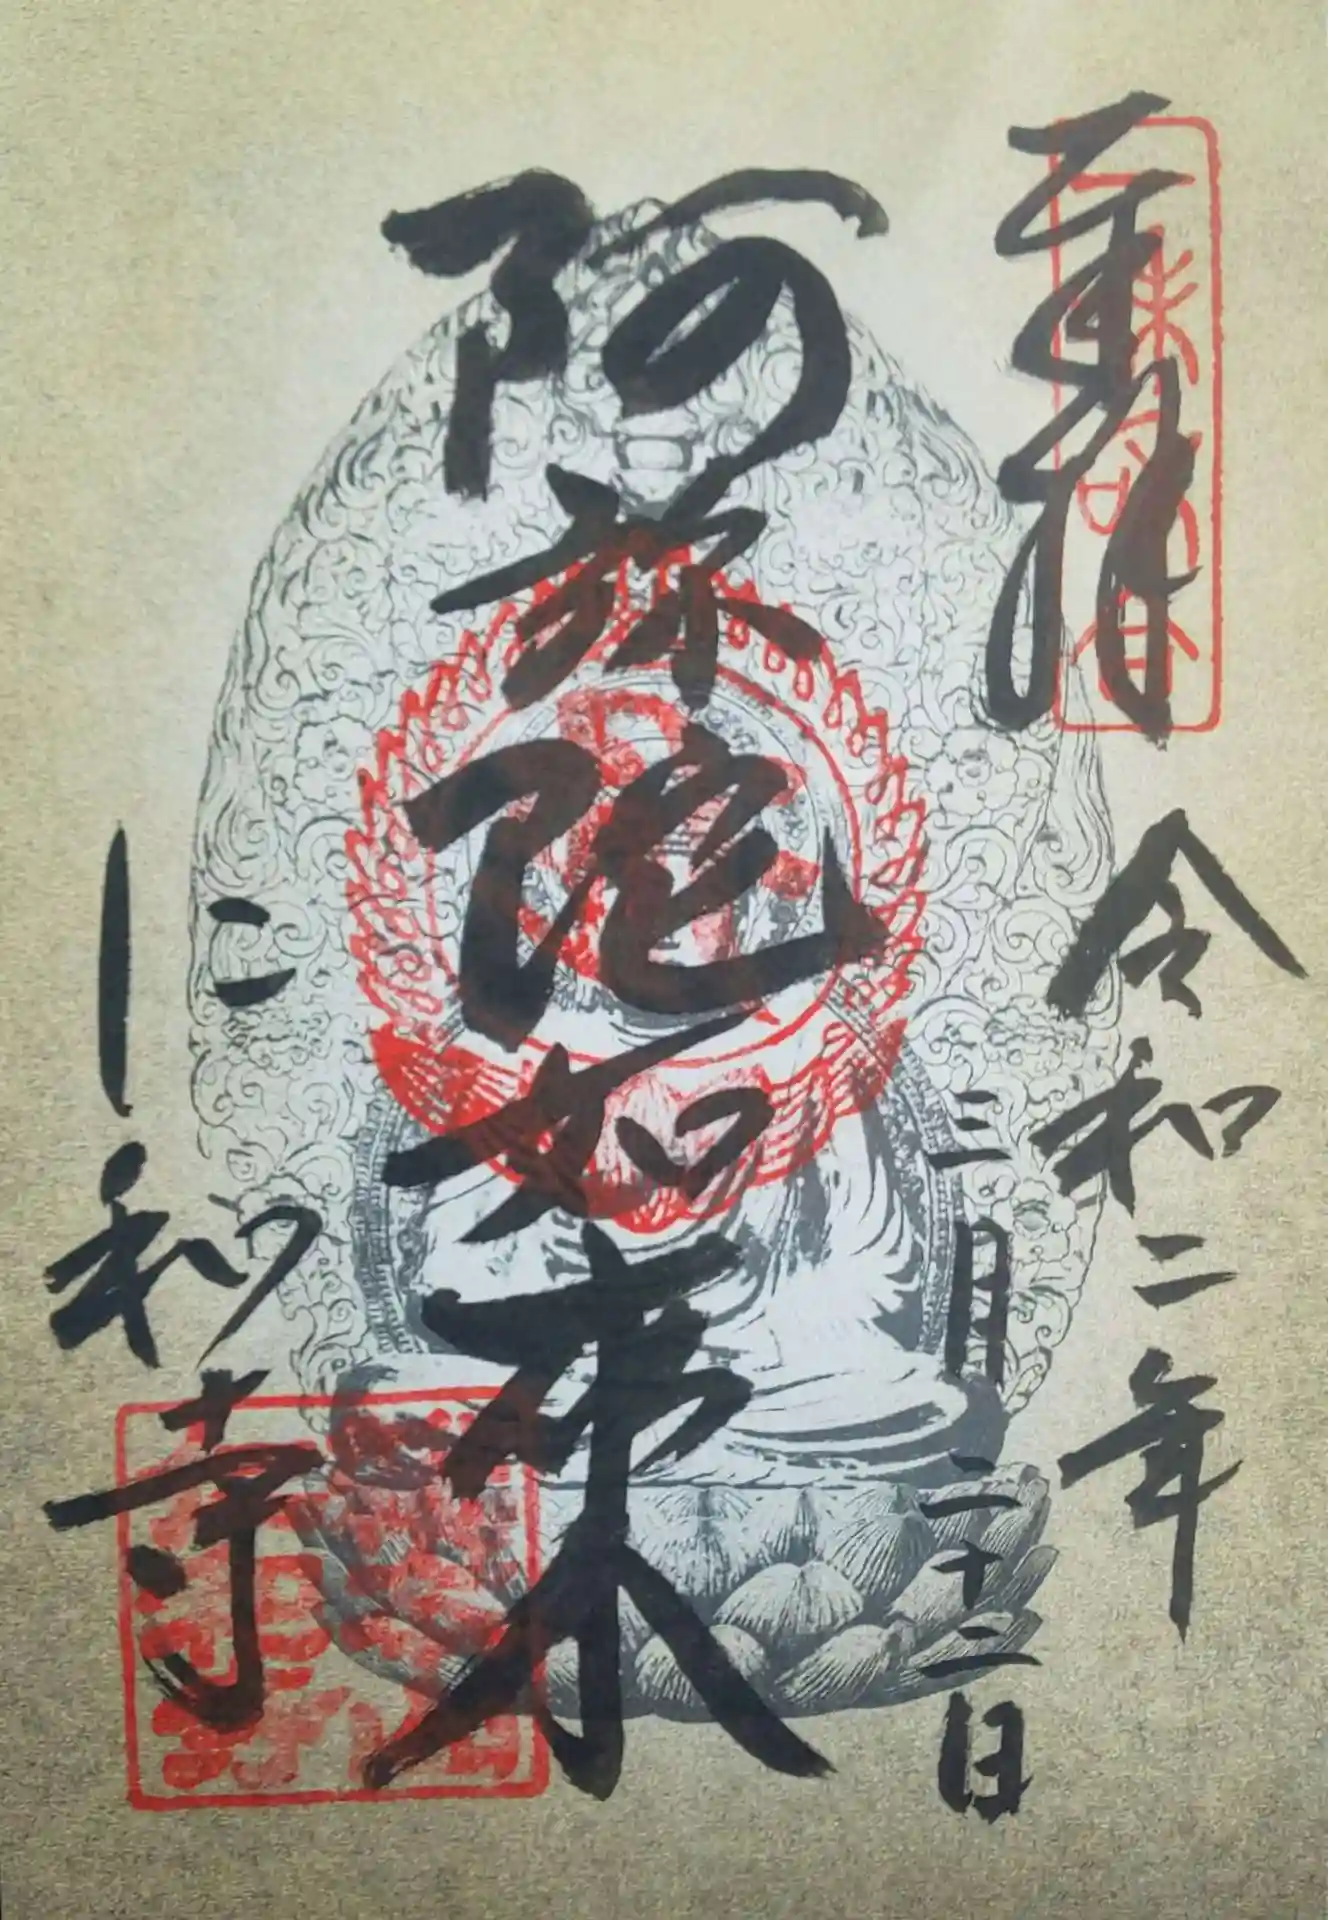 奉拝
令和二年
三月二十二日
阿弥陀如来
仁和寺